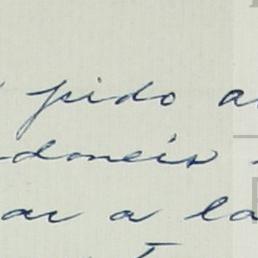 pido a
doneis
ar a la